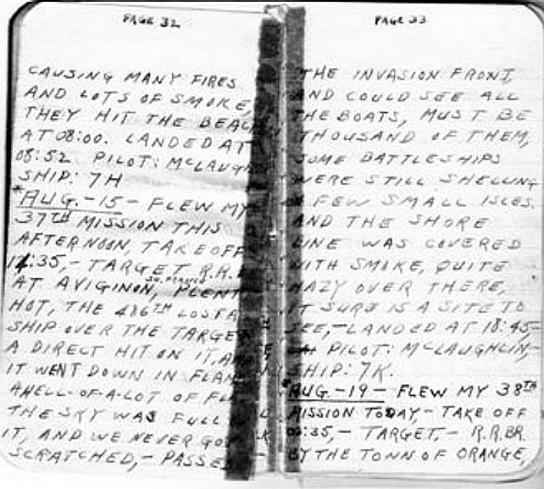 PAGE 32
CAUSING MANY FIRES
AND LOTS OF SMOKE,
THEY HIT THE BEACH
AT 08:00. LANDED AT
08:52 PILOT: MCLAUGH
SHIP: 7H
*AUG.-15- FLEW MY
37TH MISSION THIS
AFTERNOON, TAKE OFF
:35,- TARGET R.R.
SO. FRANCE
AT AVIGINON, PLENT
HOT, THE 486TH LOST A
SHIP OVER THE TARGE
A DIRECT HIT ON IT, A
IT WENT DOWN IN FLAM
A HELL-OF-A-LOT OF FL
THE SKY WAS FULL
IT, AND WE NEVER GO
SCRATCHED,- PASSED
PAGE 33
THE INVASION FRONT,
AND COULD SEE ALL
THE BOATS, MUST BE
THOUSAND OF THEM,
SOME BATTLESHIPS
WERE STILL SHELLING
A FEW SMALL ISLES.
AND THE SHORE
LINE WAS COVERED
WITH SMOKE, QUITE
HAZY OVER THERE,
IT SURE IS A SITE TO
SEE,- LANDED AT 18:45-
PILOT: MCLAUGHLIN,-
SHIP: 7K.
*AUG.-19- FLEW MY 38TH
MISSION TODAY,- TAKE OFF
:35,- TARGET,- R.R.BR.
BY THE TOWN OF ORANGE,